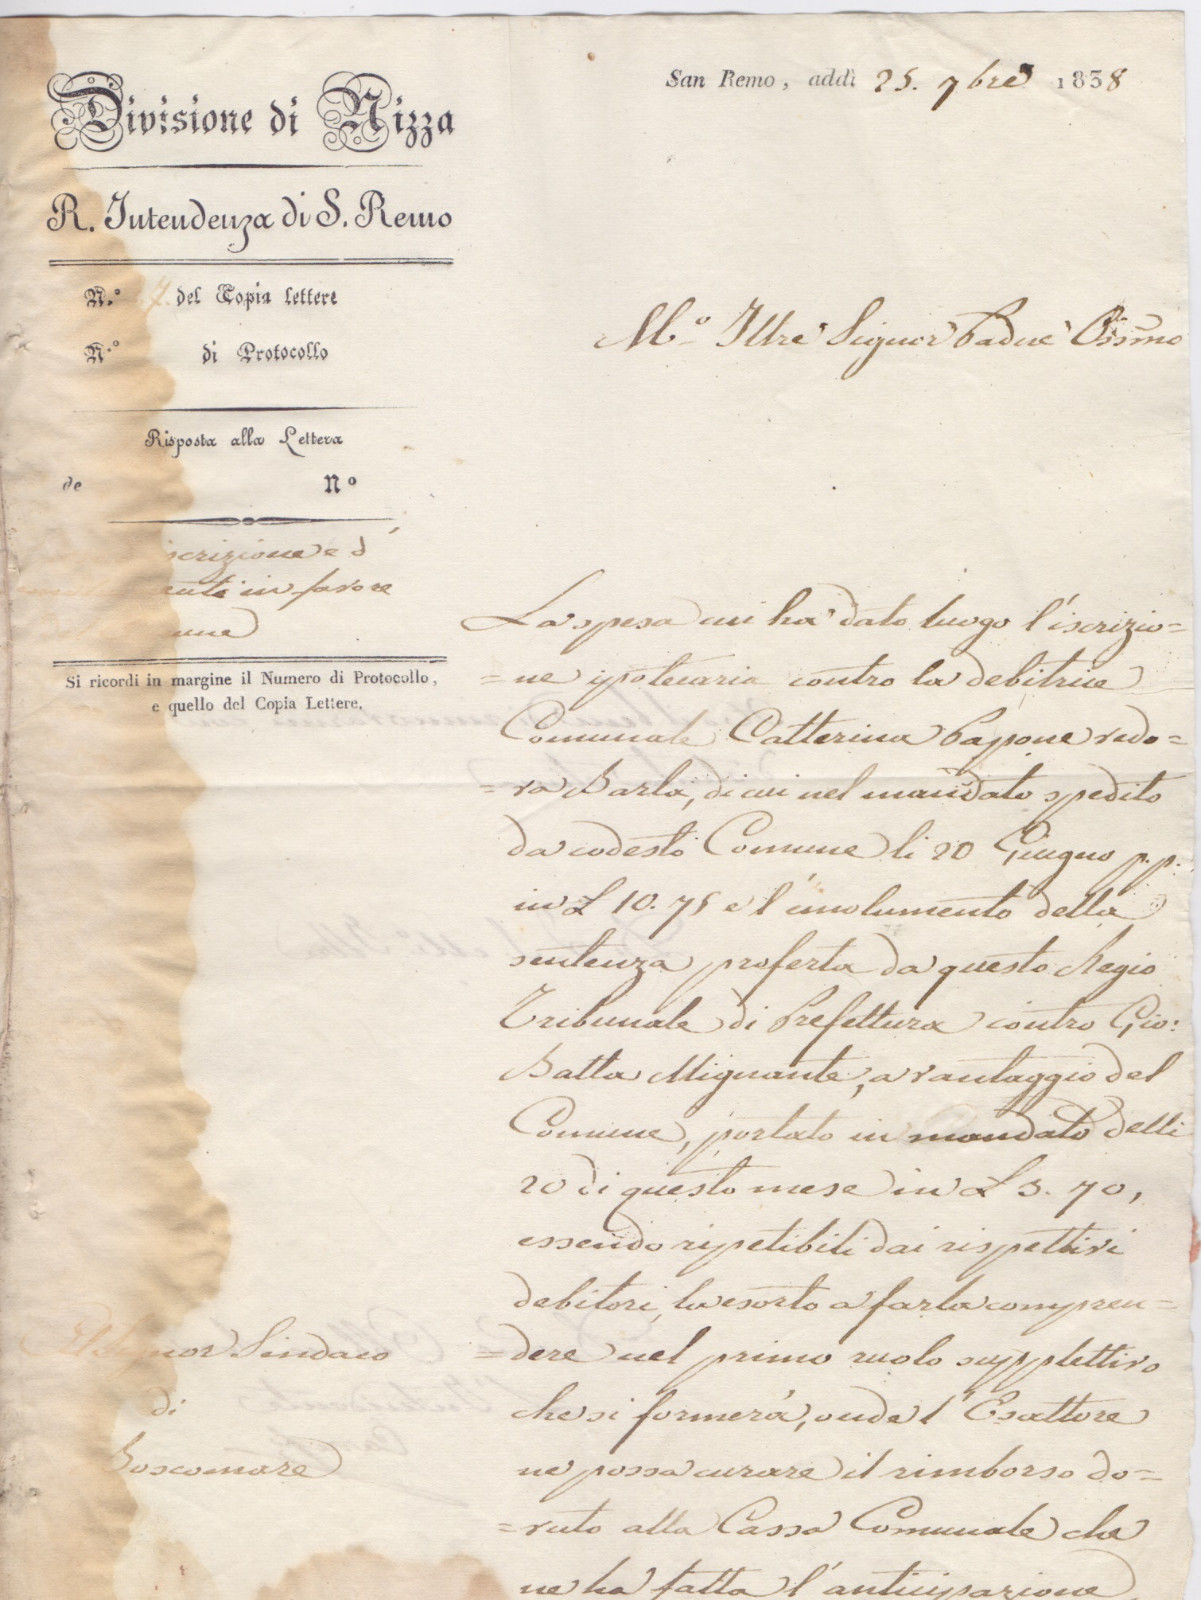 Divisione di Nizza
R. Intendenza di S. Remo
N.º 7. del Copia lettere
N.º di Protocollo
Risposta alla Lettera
de Nº
scrizione e d'
enti in favore
une
Si ricordi in margine il Numero di Protocollo,
e quello del Copia Lettere.
Il Signor Sindaco
di
Boscomare
San Remo, addì 25. 7bre 1838
M.º Illre Signor Padne Ossmo
La spesa cui ha dato luogo l'iscrizio=
=ne ipotecaria contro la debitrice
Comunale Catterina Papone vedo=
=va Barla, di cui nel mandato spedito
da codesto Comune li 20 Giugno p.p.
in £ 10.75 e l'emolumento della
sentenza proferta da questo Regio
Tribunale di Prefettura contro Gio:
Batta Mignante, a vantaggio del
Comune, portato in mandato delli
20 di questo mese in £ 3.70,
essendo ripetibili dai rispettivi
debitori, la esorto a farla compren=
=dere nel primo ruolo supplettivo
che si formerà, onde l'Esattore
ne possa curare il rimborso do=
=vuto alla Cassa Comunale che
ne ha fatta l'anticipazione,